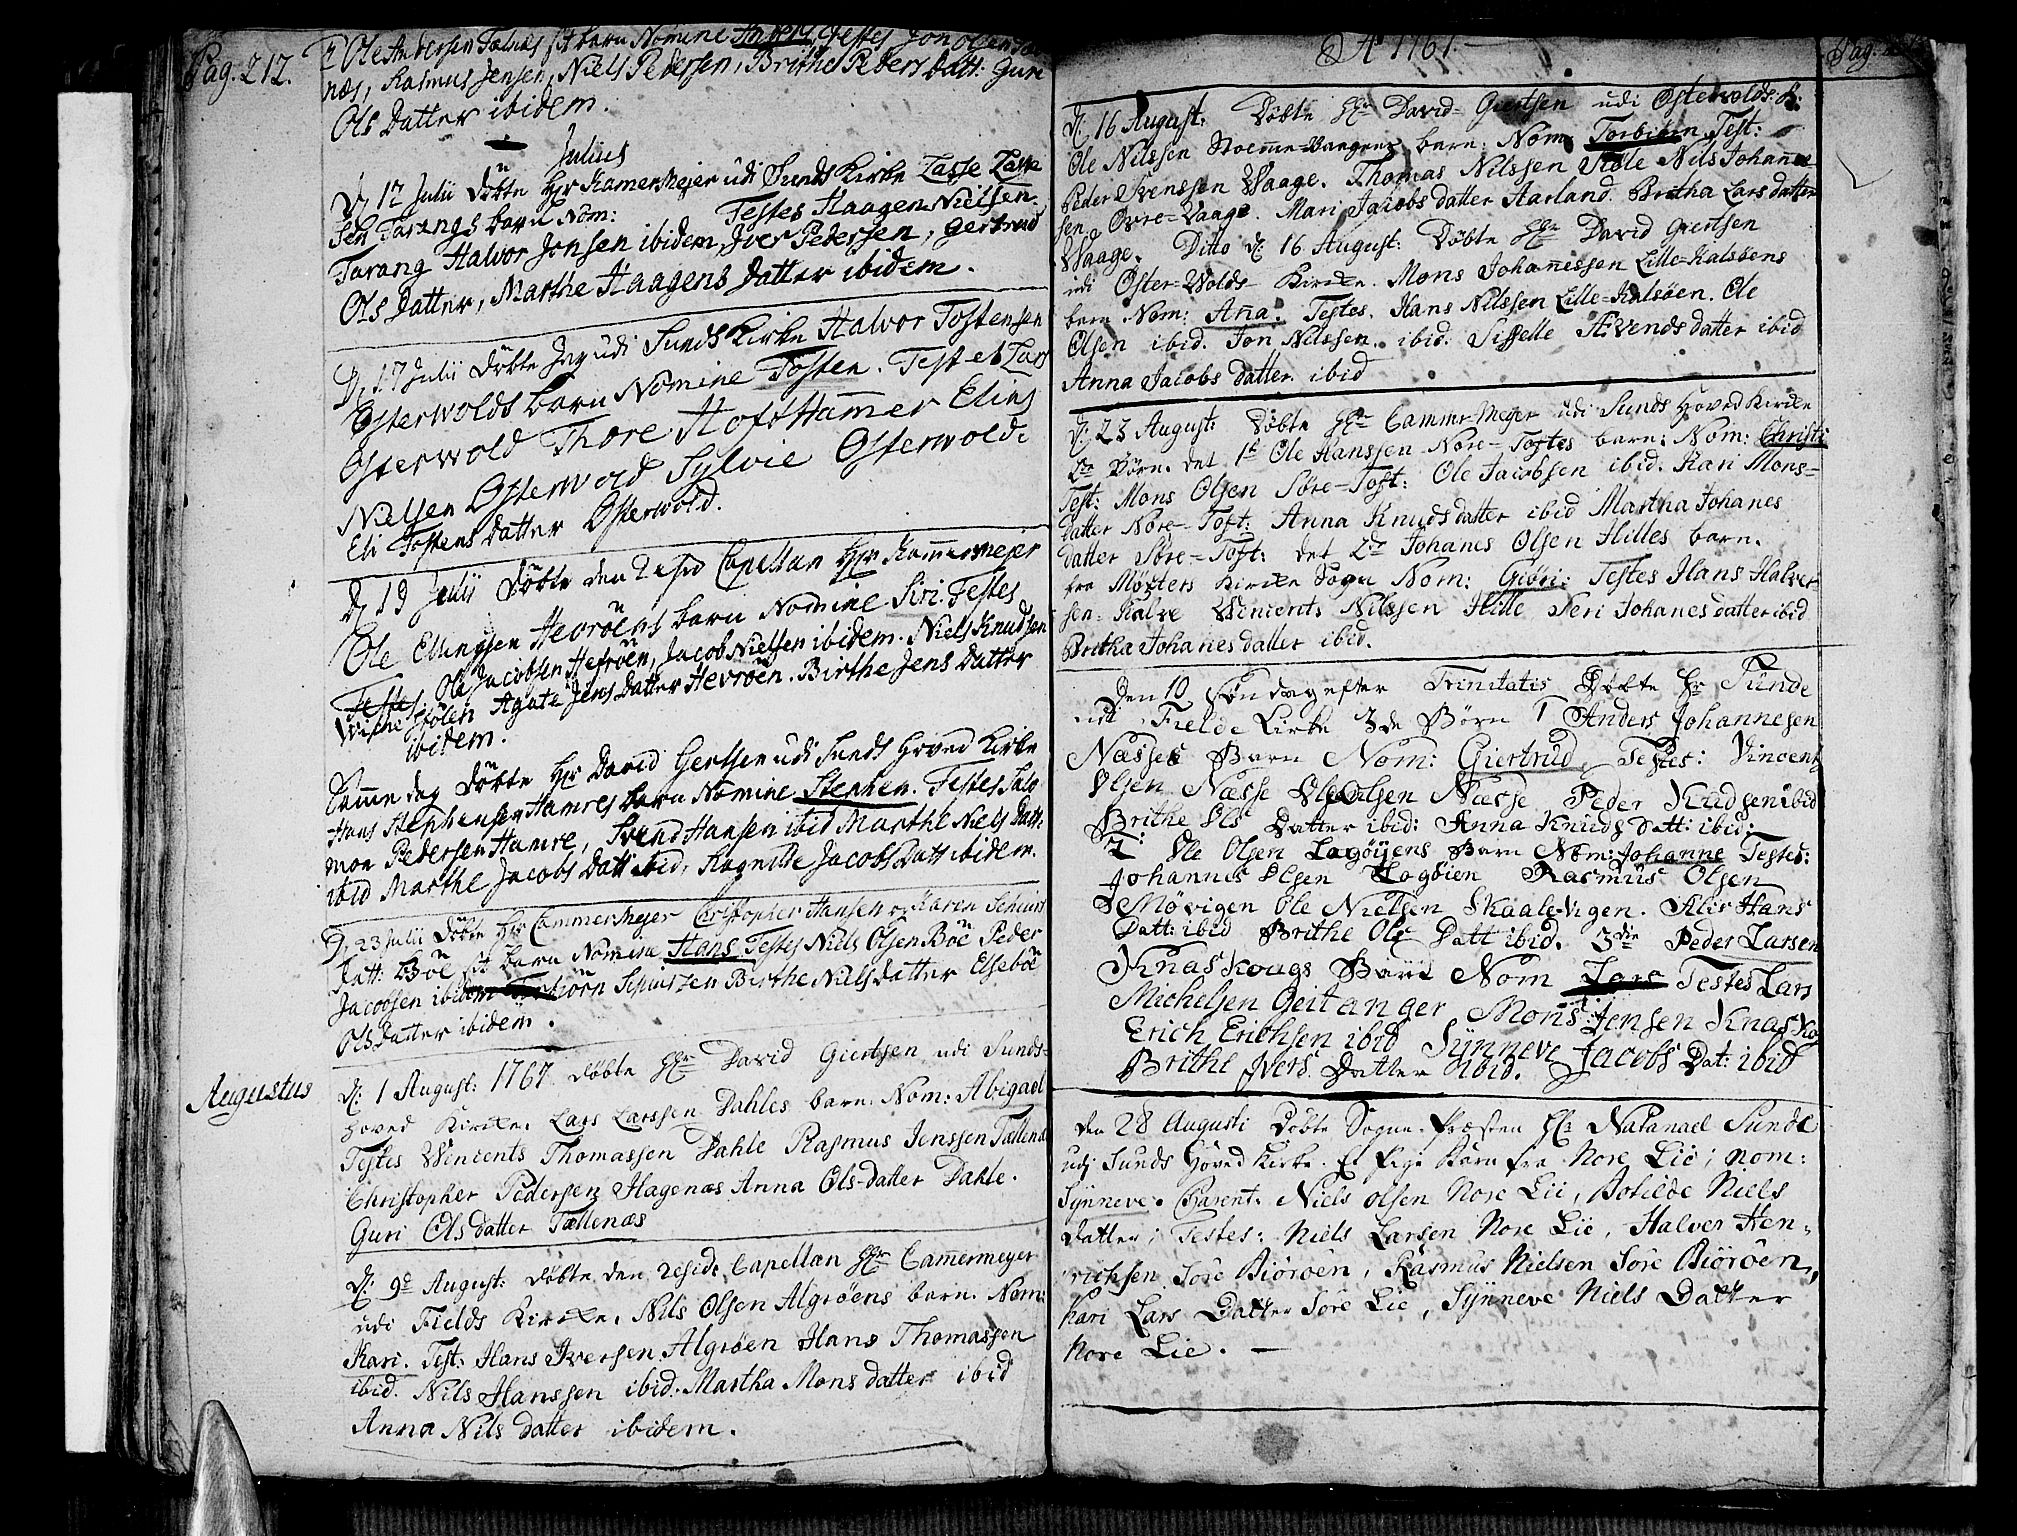 Pag. 212.
Ole Andersen Tælnæs sit barn Nomine Anders, Testes Jon Olsen Tæl
næs, Rasmus Jensen, Niels Pedersen, Brithe Peders Datt: Guri
Ols Datter ibidem.
Julius
D. 12 Julii Döbte Hr Kamermejer udi Sunds Kirke Lasse Lasse
sen Tarangs barn Nom: Testes Haagen Nielsen
Tarang Halvor Jonsen ibidem, Iver Pedersen, Gertrud
Ols Datter, Marthe Haagens Datter ibidem.
D. 17 Julii Döbte Jeg udi Sunds Kirke Halvor Tostensen
Osterwolds barn Nomine Tosten. Test et Lars
Osterwold Thore Hofthammer Elias
Nielsen Osterwold Sylvie Osterwold
Eli Tostens Datter Osterwold.
D. 19 Julii Döbte den Resid Capellan Hr Kammermejer
Ole Ellingsen Hevröens barn Nomine Siri. Testes
Testes. Ole Jacobsen Hefröen, Jacob Nielsen ibidem. Niels Knudsen
Agate Jens Datter Hevröen. Birthe Jens Datter
ibidem.
Samme dag Döbte Hr David Gertsen udi Sunds Hoved Kirke
Hans Stephensen Hamres barn Nomine Stephen. Testes Salo
mon Pedersen Hamre, Svend Hansen ibid Marthe Niels Datt:
ibid Marthe Jacobs Datt ibid, Ragnilde Jacobs Datt ibidem.
D. 23 Julii Döbte Hr Cammermejer Christopher Hansen og Karen
Datt: Böe sit barn Nomine Hans Testes Niels Olsen Böe Peder
Jacobsen ibidem Birthe Niels Datter Elseböe
Ols Datter ibidem.
Augustus
D: 1 August: 1767 Döbte Hr David Giertsen udi Sunds-
Hoved Kircke. Lars Larssen Dahles barn. Nom: Abigael
Testes Wincents Thomassen Dahle Rasmus Jenssen Tællenæs
Christopher Pedersen Hagenæs Anna Ols-datter Dahle.
Guri Ols datter Tællenæs
D: 9de August: Döbte den resid: Capellan Hr Camermeyer
udi Fields Kircke, Nils Olsen Algröens barn. Nom:
Kari. Test: Hans Iversen Algröen Hans Thomassen
ibid. Nils Hanssen ibid: Martha Mons datter ibid
Anna Nils datter ibidem.
A 1761
Pag.
D. 16 August: Döbte Hr David-Giertsen udi Østewolds. K:
Ole Nilssen Stoemme-Vaagens barn: Nom: Torbiörn Test:
Peder Svenssen Waage. Thomas Nilssen Nils Johanne
sen Øvre-Vaage. Mari Jacobs datter Aarland. Britha Lars datter
Waage. Ditto d. 16 August: Döbte Hr David Giertsen
udi Øster-Wolds Kircke. Mons Johannissen Lille-Kalsöens
barn Nom: Ana. Testes. Hans Nilssen Lille-Kalsöen. Ole
Olsen ibid. Jon Nilssen. ibid. Sisselle Ævends datter ibid
Anna Jacobs datter. ibid
D. 23 August: Döbte Hr Cammer-Meyer udi Sunds Hoved Kircke
2de Börn. det 1te Ole Hanssen Nore-Tostes barn: Nom: Christi
Test: Mons Olsen Söre-Toft: Ole Jacobsen ibid. Kari Mons-
datter Nore-Toft: Anna Knuds datter ibid Martha Johanes
datter Söre-Toft: det 2de Johanes Olsen Hilles barn.
fra Møsters Kircke Sogn Nom: Giöri: Testes Hans Halver
sen. Kalve Wincents Nilssen Hille Seri Johanes datter ibid
Britha Johanes datter ibid.
Den 10 Söndag efter Trinitatis Döbte Hr Sunde
udi Fielde Kirke 3de Börn 1 Anders Johannesen
Næsses Barn Nom: Giertrud, Testes: Vincents
Olsen Næsse Ole Olsen Næsse Peder Knudsen ibid
Brithe Ols Datter ibid: Anna Knuds Datt: ibid:
2: Ole Olsen Lagöyens Barn Nom: Johanne Testes:
Johannes Olsen Lagöien Rasmus Olsen
Mövigen Ole Nielsen Skaale-Vigen. Alis Hans
Datt: ibid Brithe Ols Datt ibid. 3die Peder Larsen
Knaskougs Barn Nom Lars Testes Lars
Michelsen Geitanger Mons Jensen Knaskog
Erich Erichsen ibid Synneve Jacobs Dat: ibid
Brithe Ivers Datter ibid.
den 28 Augusti Döbte Sogne-Præsten Hr Natanael Sunde
udj Sunds Hoved Kirke. Et Pige Barn fra Nore Lie; nom:
Synneve. Parent: Niels Olsen Nore Lie, Botilde Niels
Datter; Testes: Niels Larsen Nore Lie, Halver Hen-
richsen Söre Biöröen, Rasmus Nielsen Söre Biöröen,
Kari Lars Datter Söre Lie, Synneve Niels Datter
Nore Lie. —